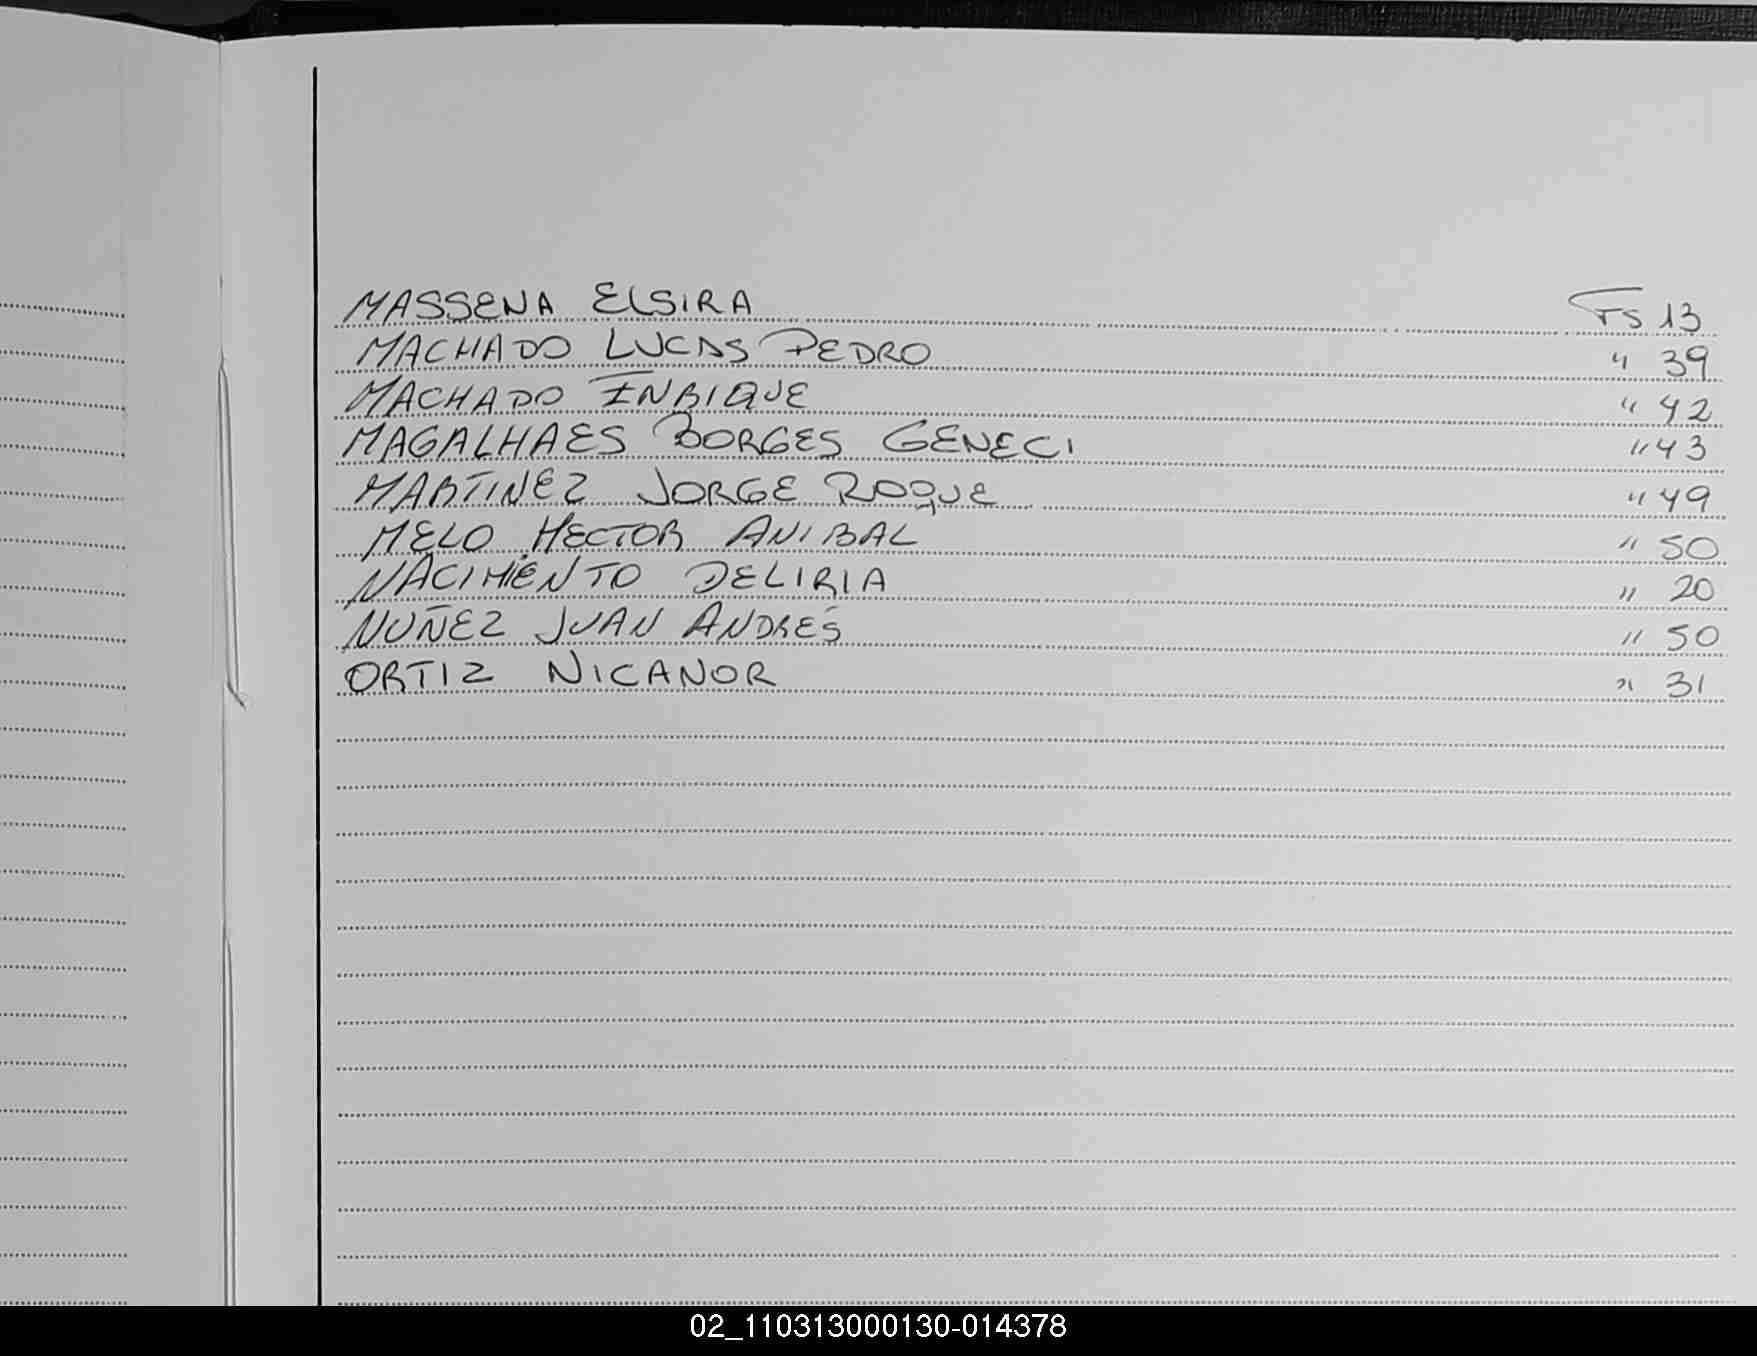 MASSENA ELSIRA FS 13
MACHADO LUCAS PEDRO " 39
MACHADO ENRIQUE " 42
MAGALHAES BORGES GENECI " 43
MARTINEZ JORGE ROQUE " 49
MELO HECTOR ANIBAL " 50
NACIMIENTO DELIRIA " 20
NUÑEZ JUAN ANDRÉS " 50
ORTIZ NICANOR " 31
02_110313000130-014378